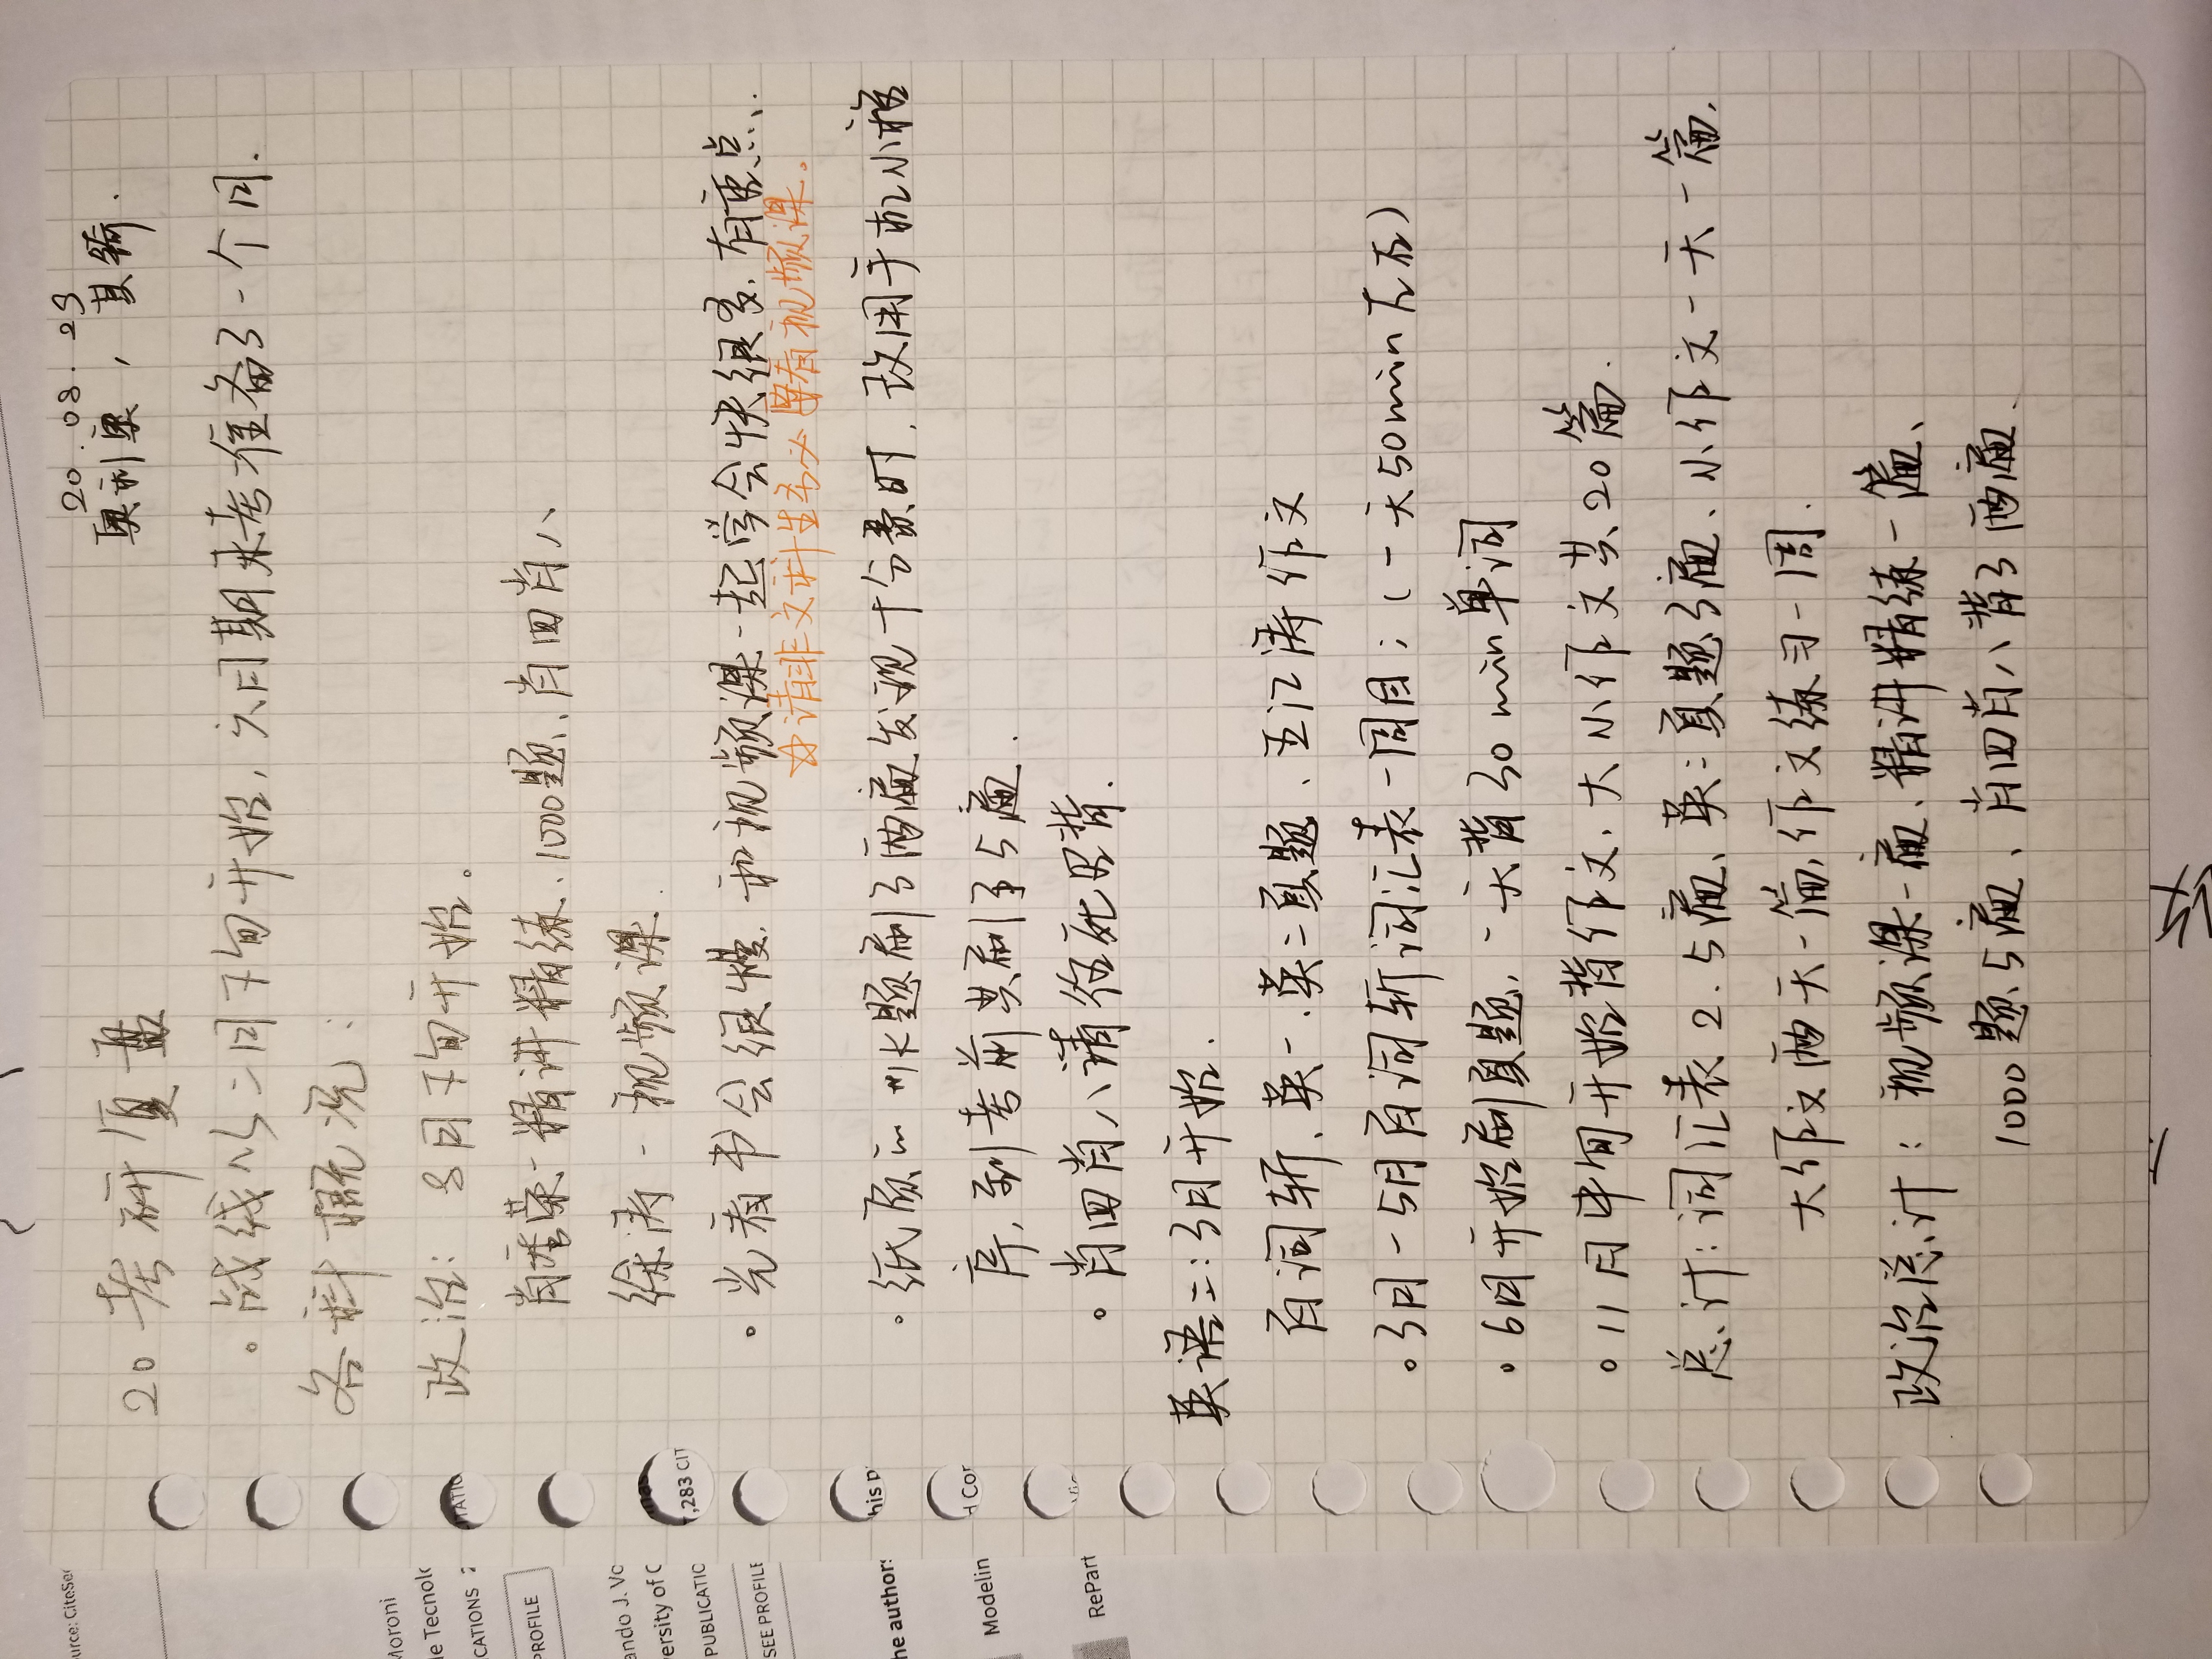 20.08.29
奥利奥，其锜.
20考研复盘
。战线从二月下旬开始，六月期末考准备了一个月.
各科概况：
政治： 8月下旬开始。
肖秀荣-精讲精练、1000题、肖四肖八
徐涛 - 视频课.
。光看书会很慢，和视频课一起学会快很多，有重点.
☆请非文科生务必要看视频课。
。纸质的 1k题刷了两遍发现十分费时，改用手机小程
序，到考前共刷了5遍.
。肖四肖八请往死里背.
英语二：3月开始.
百词斩、英一、英二真题、王江涛作文
。3月-5月百词斩词汇表一周目；（一天50min左右）
。6月开始刷真题，一天背30min单词
。11月中旬开始背作文，大小作文共20篇.
总计：词汇表2.5遍、英二真题3遍、小作文一天一篇，
大作文两天一篇，作文练习一周.
政治总计：视频课一遍、精讲精练一遍、
1000题5遍、肖四肖八背了两遍.
urce: CiteSee
Moroni
le Tecnolo
ICATIONS
PROFILE
ando J. Vo
ersity of C
PUBLICATIO
SEE PROFILE
7,283 CIT
his p
he authors
d Cor
Modelin
RePart